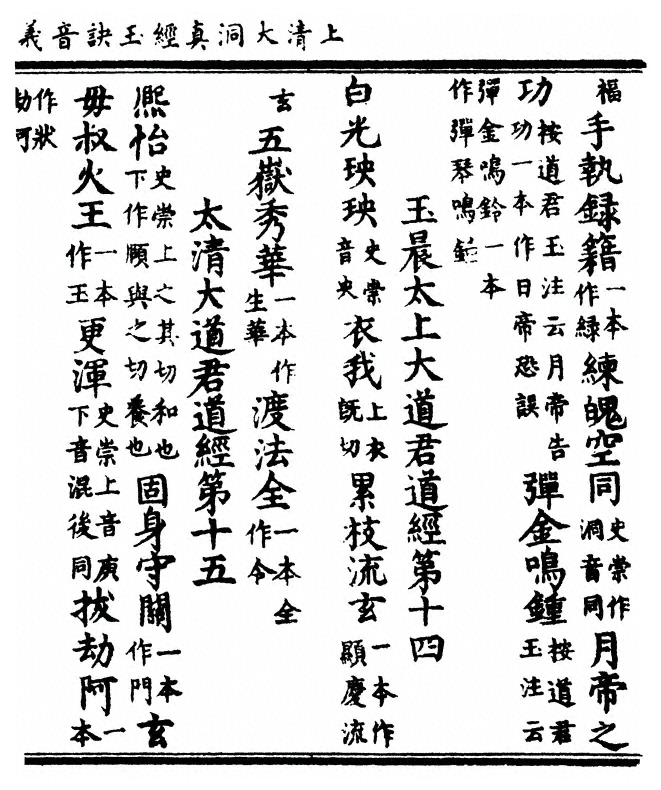 上清大洞真經玉訣音義
福手執録籍一本作緑練魄空同史崇作洞音同月帝之
功按道君玉注云月帝告功一本作日帝恐誤彈金鳴鍾按道君玉注云
彈金鳴鈴一本作彈琴鳴鍾
玉晨太上大道君道經第十四
白光史崇音央衣我上衣既切累枝流玄一本作顯慶流
玄五嶽秀華一本作生華渡法全一本全作令
太清大道君道經第十五
熈怡史崇上之其切和也下作頤與之切養也固身守關一本作門玄
毋叔火王一本作玉更渾史崇上音庚下音混後同拔劫阿一本
作狀劫阿